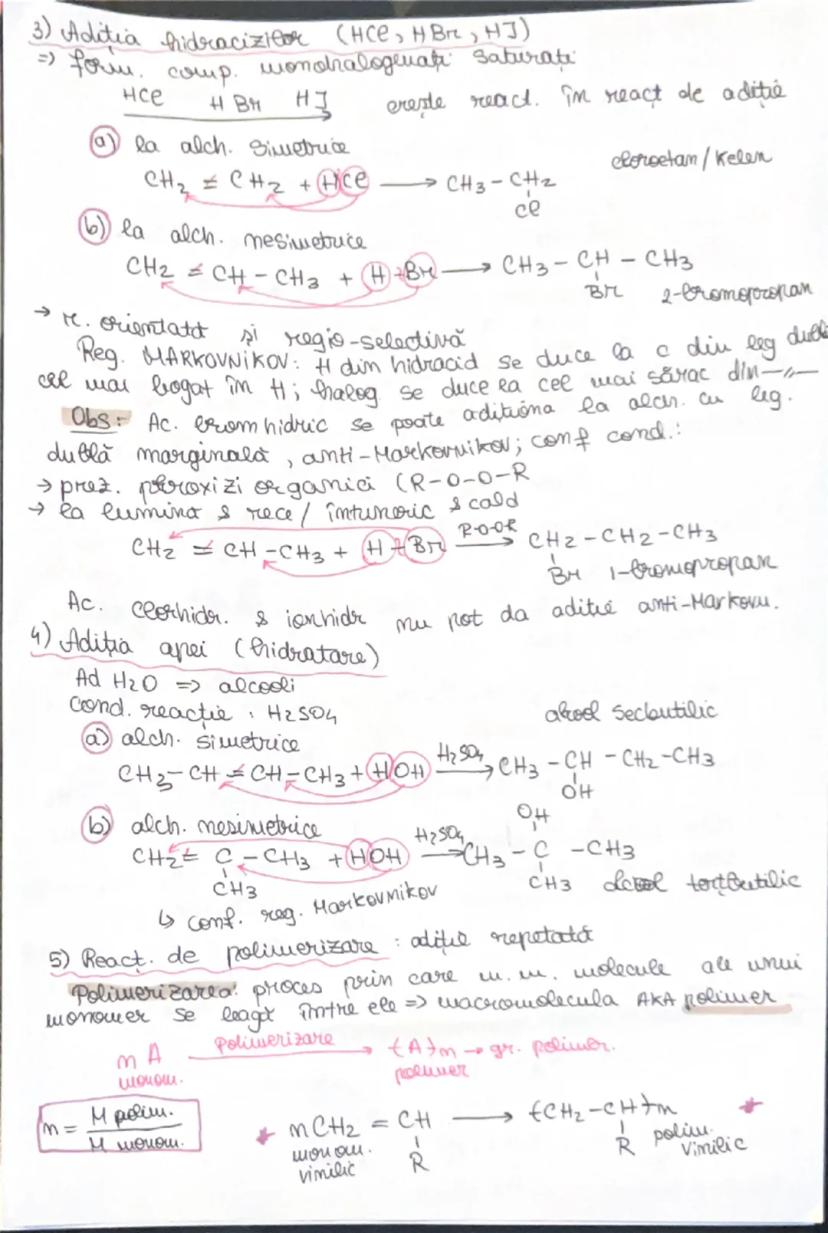 3) Adiția hidracizilor (HCl, HBr, HI)
=> form. comp. monohalogenați saturați
HCl HBr HI crește react. în react de adiție
a) la alch. simetrice
cloroetan/Kelen
CH2 = CH2 + HCl → CH3 - CH2
Cl
b) la alch. nesimetrice
CH2 = CH - CH3 + H - Br → CH3 - CH - CH3
Br 2-bromopropan
→ r. orientată și regio-selectivă
Reg. MARKOVNIKOV: H din hidracid se duce la C din leg dublă
cel mai bogat în H; halog. se duce la cel mai sărac din -〃-
Obs: Ac. bromhidric se poate adiționa la alch. cu leg.
dublă marginală, anti-Markovnikov; conf cond.:
→ prez. peroxizi organici (R-O-O-R
→ la lumină & rece / întuneric & cald
CH2 = CH - CH3 + H - Br R-O-OR → CH2 - CH2 - CH3
Br 1-bromopropan
Ac. clorhidr. & iodhidr nu pot da adiție anti-Markovn.
4) Adiția apei (hidratare)
Ad H2O => alcooli
Cond. reacție : H2SO4
alcool secbutilic
a) alch. simetrice
CH3 - CH = CH - CH3 + HOH H2SO4 → CH3 - CH - CH2 - CH3
OH
b) alch. nesimetrice
OH
CH2 = C - CH3 + HOH H2SO4 → CH3 - C - CH3
CH3 CH3 alcool terțbutilic
↳ conf. reg. Markovnikov
5) React. de polimerizare : adiție repetată
Polimerizarea: proces prin care m.m. molecule ale unui
monomer se leagă între ele => macromolecula AKA polimer
nA Polimerizare → (A)n → gr. polimer.
monom. polimer
n = M polim. / M monom.
* nCH2 = CH → (CH2 - CH)n *
R R
monom. vinilic polim. vinilic